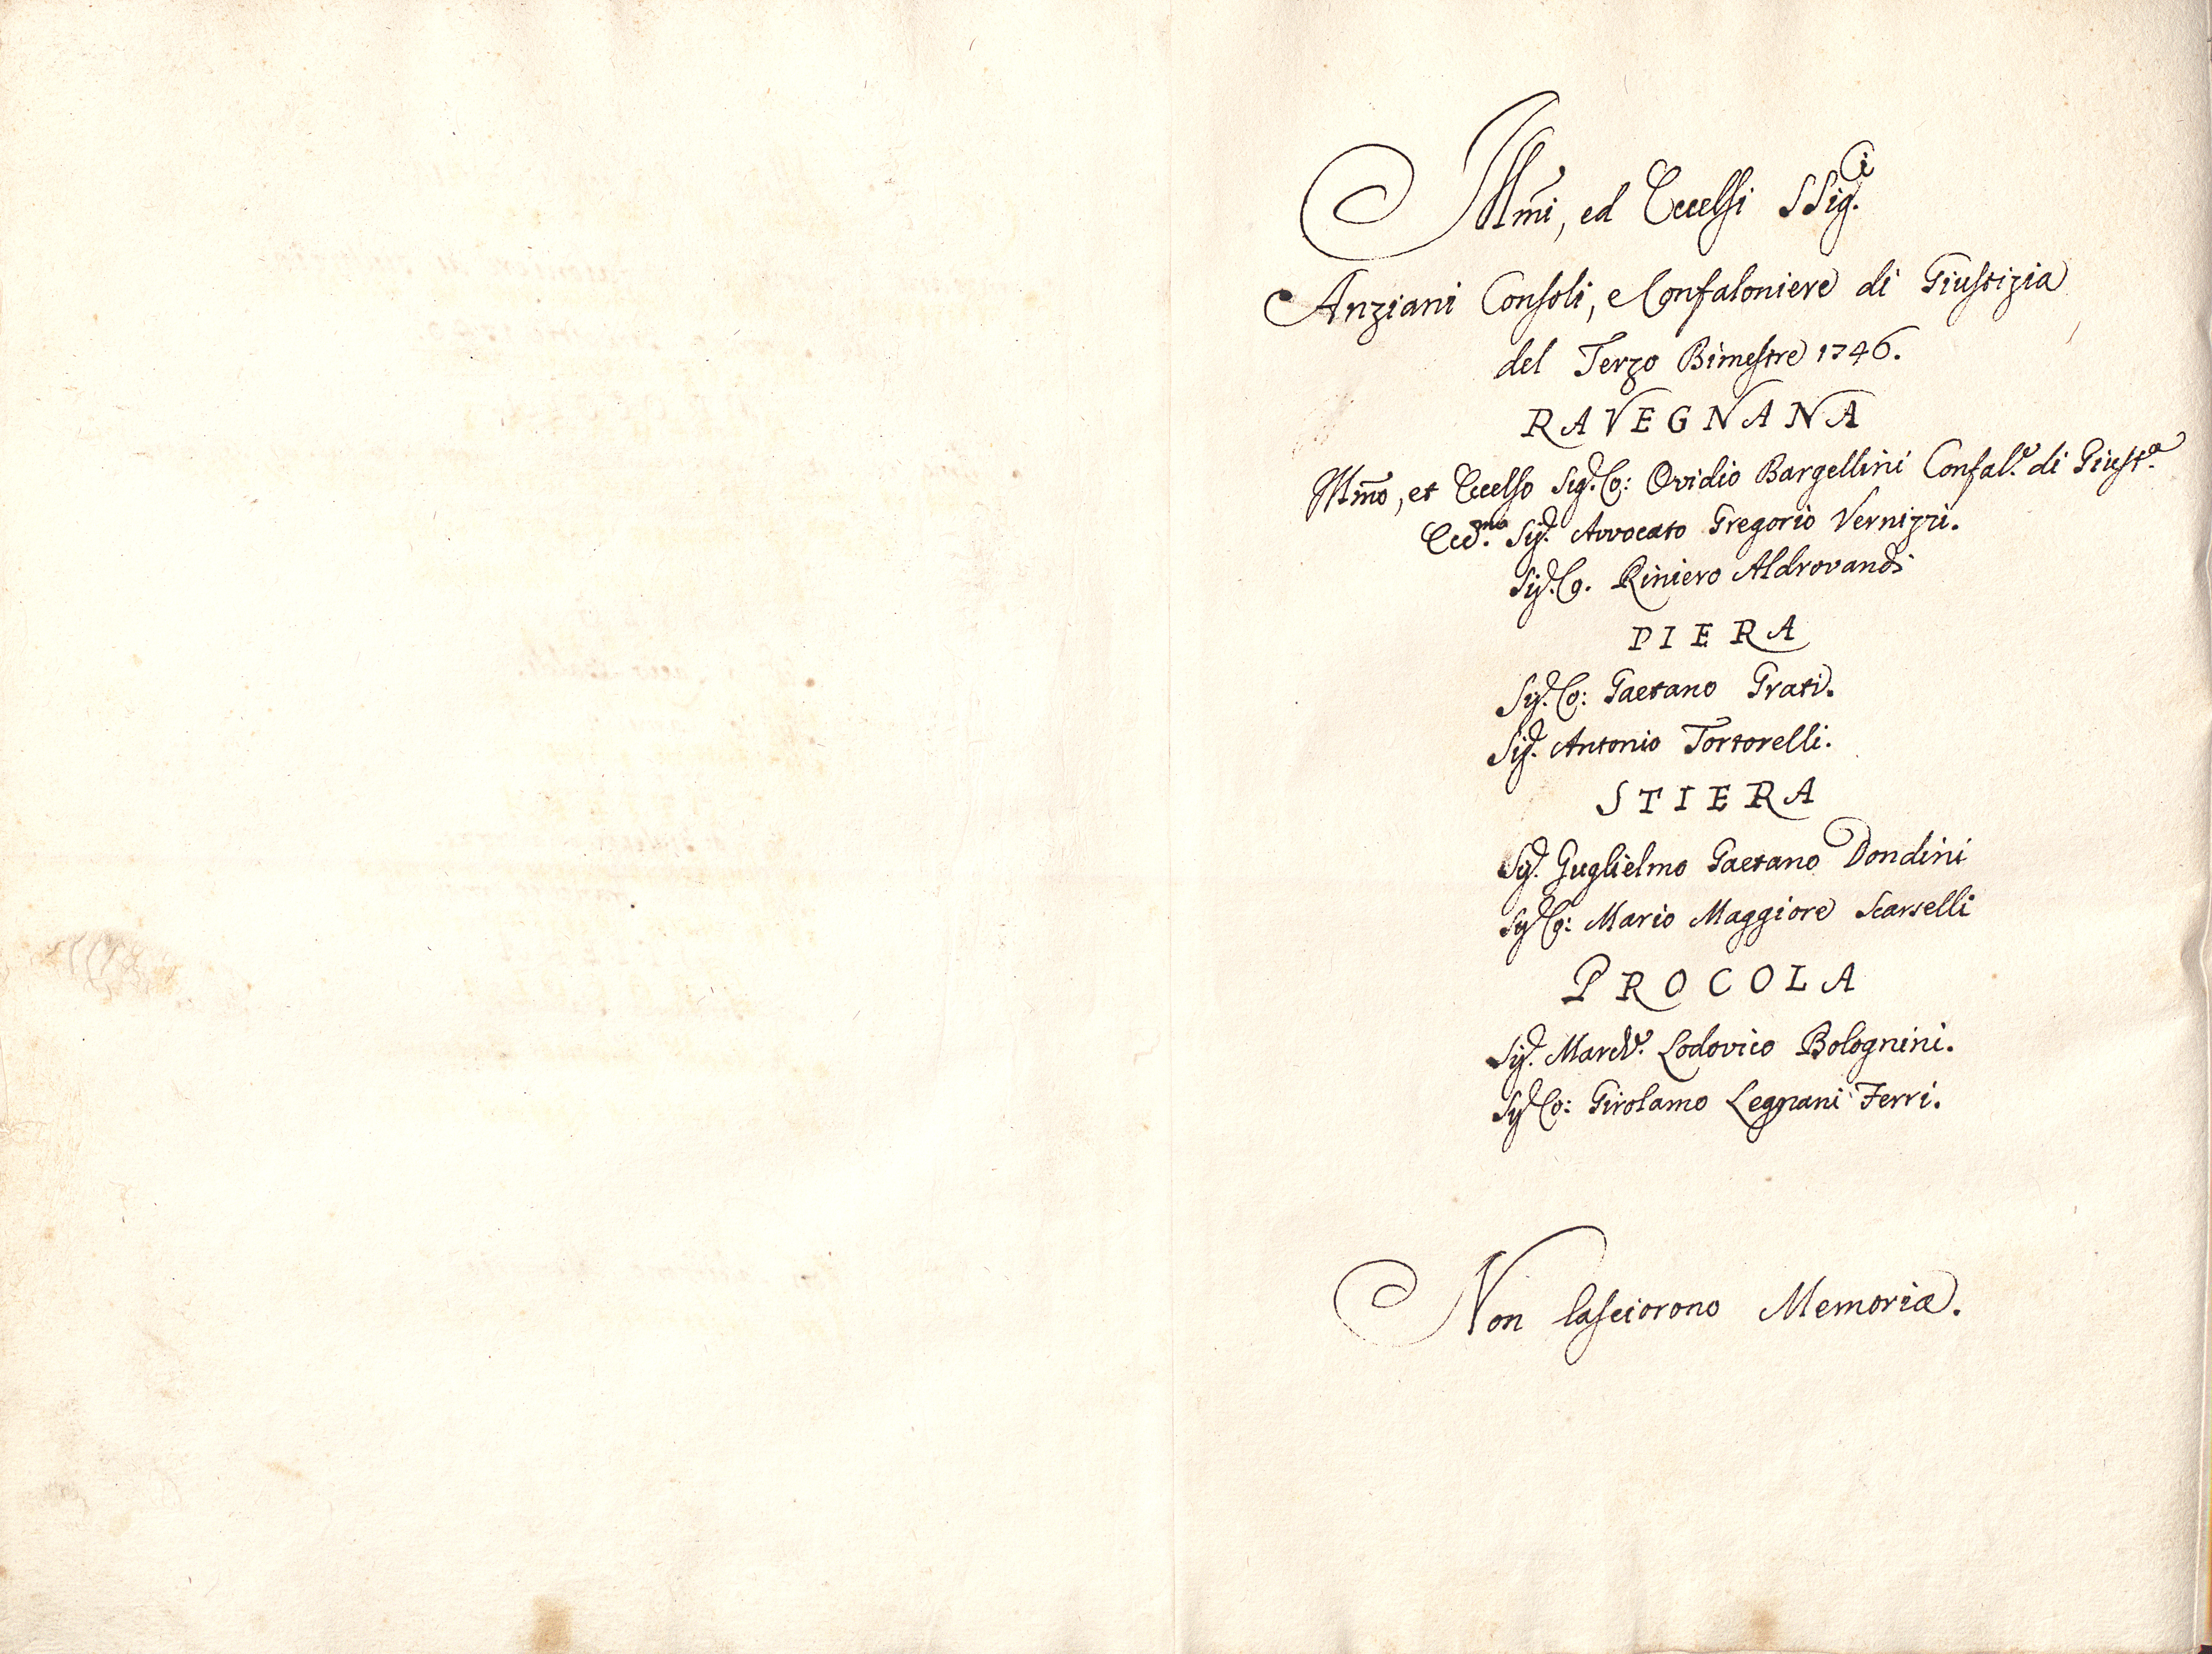 Illmi, ed Eccelsi SSig.i
Anziani Consoli, e Confaloniere di Giustizia
del Terzo Bimestre 1746.
RAVEGNANA
Illmo, et Eccelso Sig.r Co: Ovidio Bargellini Confal.e di Giust.a
Ecc.mo Sig.r Avvocato Gregorio Vernizzi.
Sig.r Co. Riniero Aldrovandi
PIERA
Sig.r Co: Gaetano Grati.
Sig.r Antonio Tortorelli.
STIERA
Sig.r Guglielmo Gaetano Dondini
Sig.r Co: Mario Maggiore Scarselli
PROCOLA
Sig.r March.e Lodovico Bolognini.
Sig.r Co: Girolamo Legnani Ferri.
Non lasciorono Memoria.